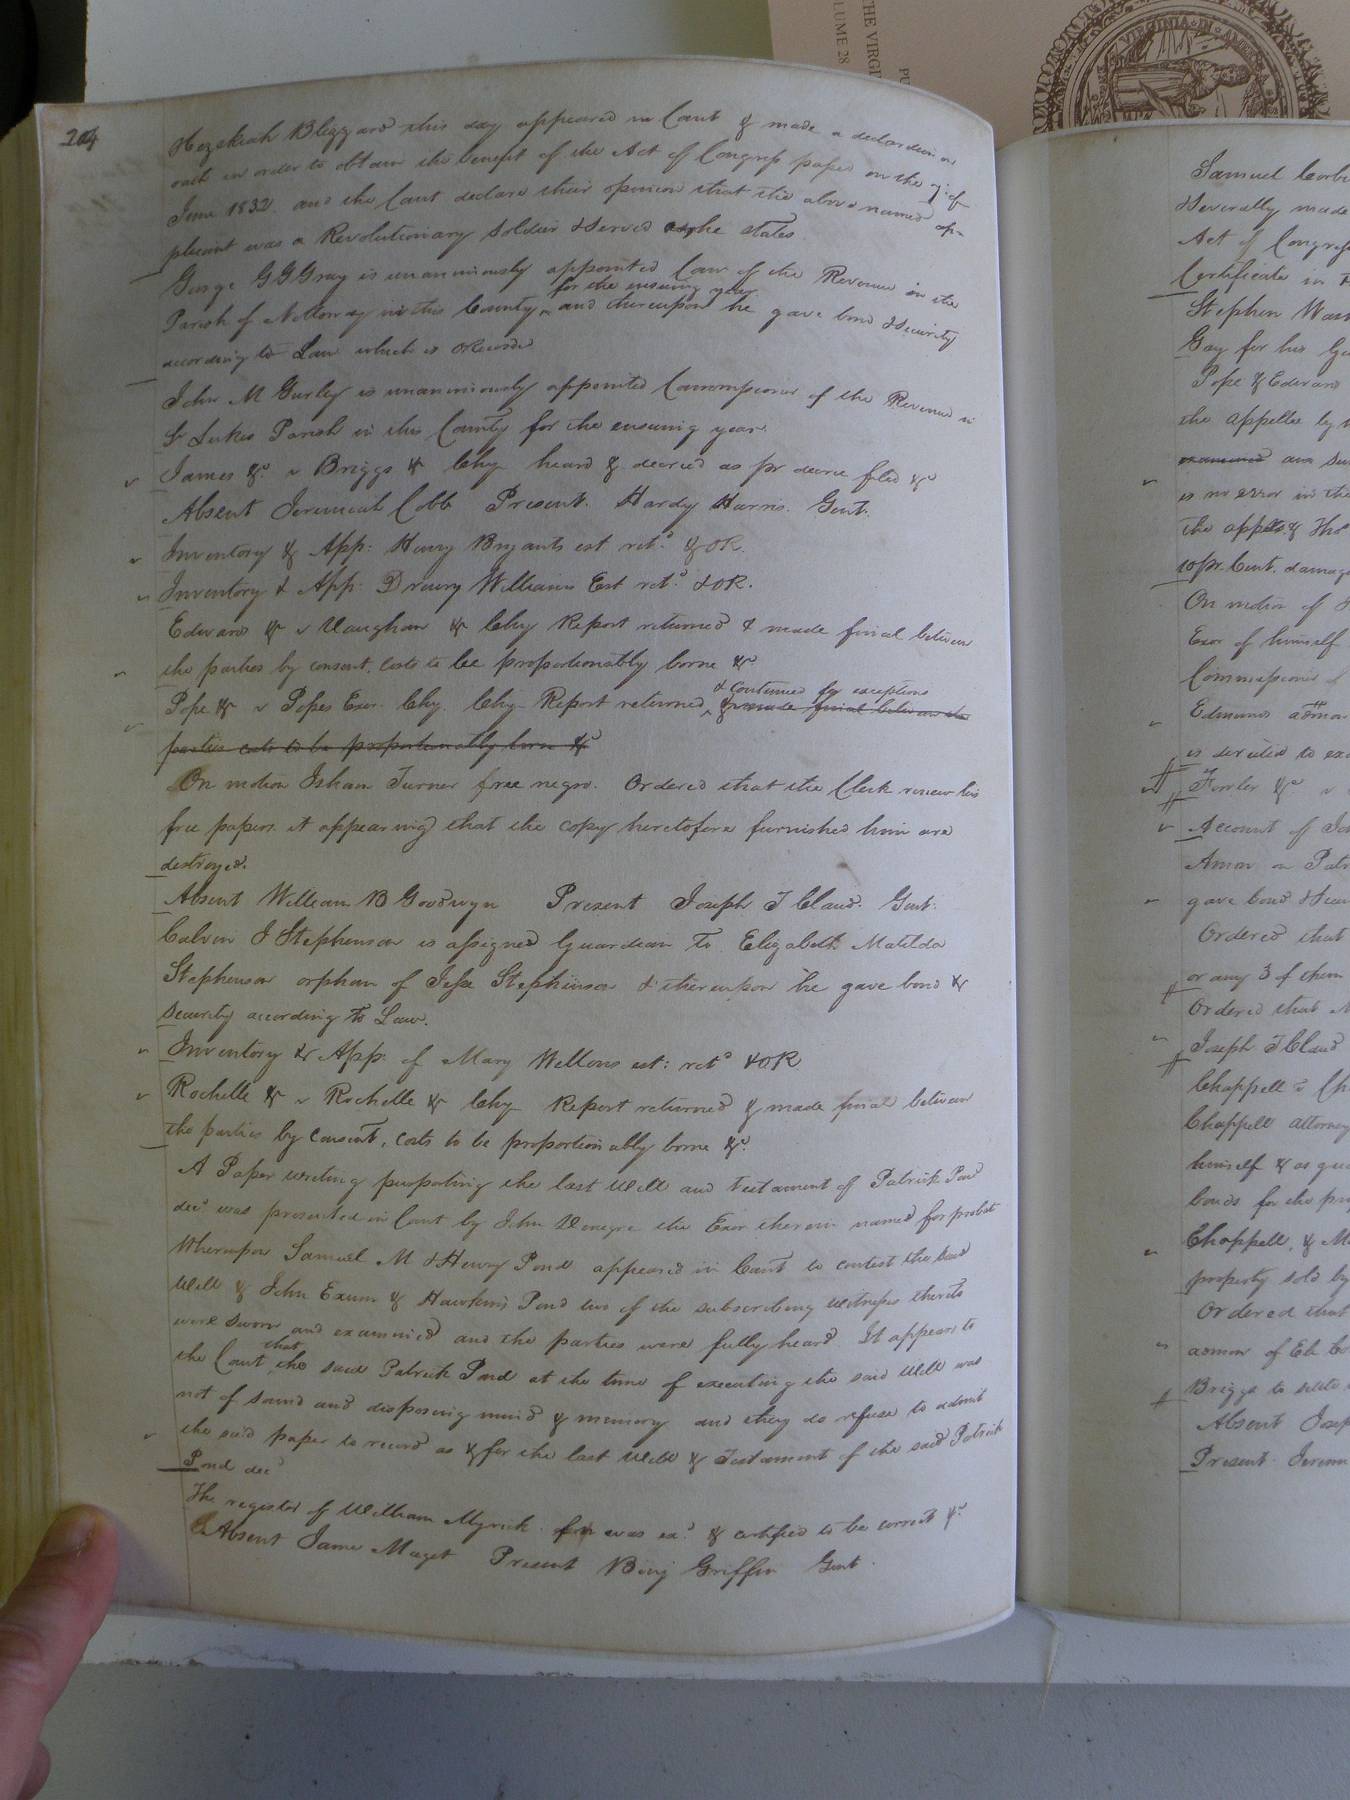 204
Hezekiah Blizzard this day appeared in Court & made a declaration on
oath in order to obtain the benefit of the Act of Congress passed on the 7 of
June 1832. and the Court declare their opinion that the above named ap-
plicant was a Revolutionary Soldier & Served as he states.
George G G Gray is unanimously appointed Com of the Revenue in the
for the ensuing year
Parish of Nottoway in this County, and thereupon he gave bond & Security
according to Law which is oRecorded
John M Gurley is unanimously appointed Commissioner of the Revenue in
St Lukes Parish in this County for the ensuing year.
James &c. v Briggs &c Chy heard & decreed as pr decree filed &c
Absent Jeremiah Cobb Present. Hardy Harris. Gent.
Inventory & App: Henry Bryants est retd. & OR.
Inventory & App: Drewry Williams Est retd. & OR.
Edwards &c v Vaughan &c Chy Report returned & made final between
the parties by consent, costs to be proportionably borne &c
& Continued for exceptions
Pope &c v Popes Exor. Chy. Chy Report returned, & made final between the
parties costs to be proportionably borne &c
On motion Isham Turner free negro. Ordered that the Clerk renew his
free papers it appearing that the copy heretofore furnished him are
destroyed.
Absent William B Goodwyn Present Joseph T Claud. Gent.
Calvin J Stephenson is assigned Guardian to Elizabeth Matilda
Stephenson orphan of Jesse Stephenson & thereupon he gave bond &
Security according to Law.
Inventory & App: of Mary Wellons est: retd & OR
Rochelle &c v Rochelle &c Chy Report returned & made final between
the parties by consent, costs to be proportionably borne &c.
A Paper writing purporting the last Will and Testament of Patrick Pond
decd was presented in Court by John Denegre the Exor therein named for probat
Whereupon Samuel M & Henry Pond appeared in Court to contest the said
Will & John Exum & Hawkins Pond two of the subscribing witnesses thereto
were sworn and examined and the parties were fully heard It appears to
that
the Court, the said Patrick Pond at the time of executing the said Will was
not of sound and disposing mind & memory and they do refuse to admit
the said paper to record as & for the last Will & Testament of the said Patrick
Pond decd
The register of William Myrick was exd. & certified to be correct &c.
Absent James Maget Present Benj Griffin Gent.
THE VIRGI
LUME 28
PU
VIRGINIA IN AMER
Samuel Corb
& Severally made
Act of Congress
Certificate in
Stephen
Gay for his
Pope & Edward
the appellee by
examined and
is no error in the
the appls & Tho
10 pr. Cent. damag
On motion of
Exor of himself
Commissioner of
Edmund admor
is directed to exa
Fowler &c v
Account of
Amon on Patr
gave bond & Secu
Ordered that
or any 3 of them
Ordered that
Joseph T Claud
Chappell v Ch
Chappell attorney
himself & as gua
bonds for the pr
Chappell, &
property sold by
Ordered that
admor of
Briggs to settle
Absent Josep
Present. Jerem